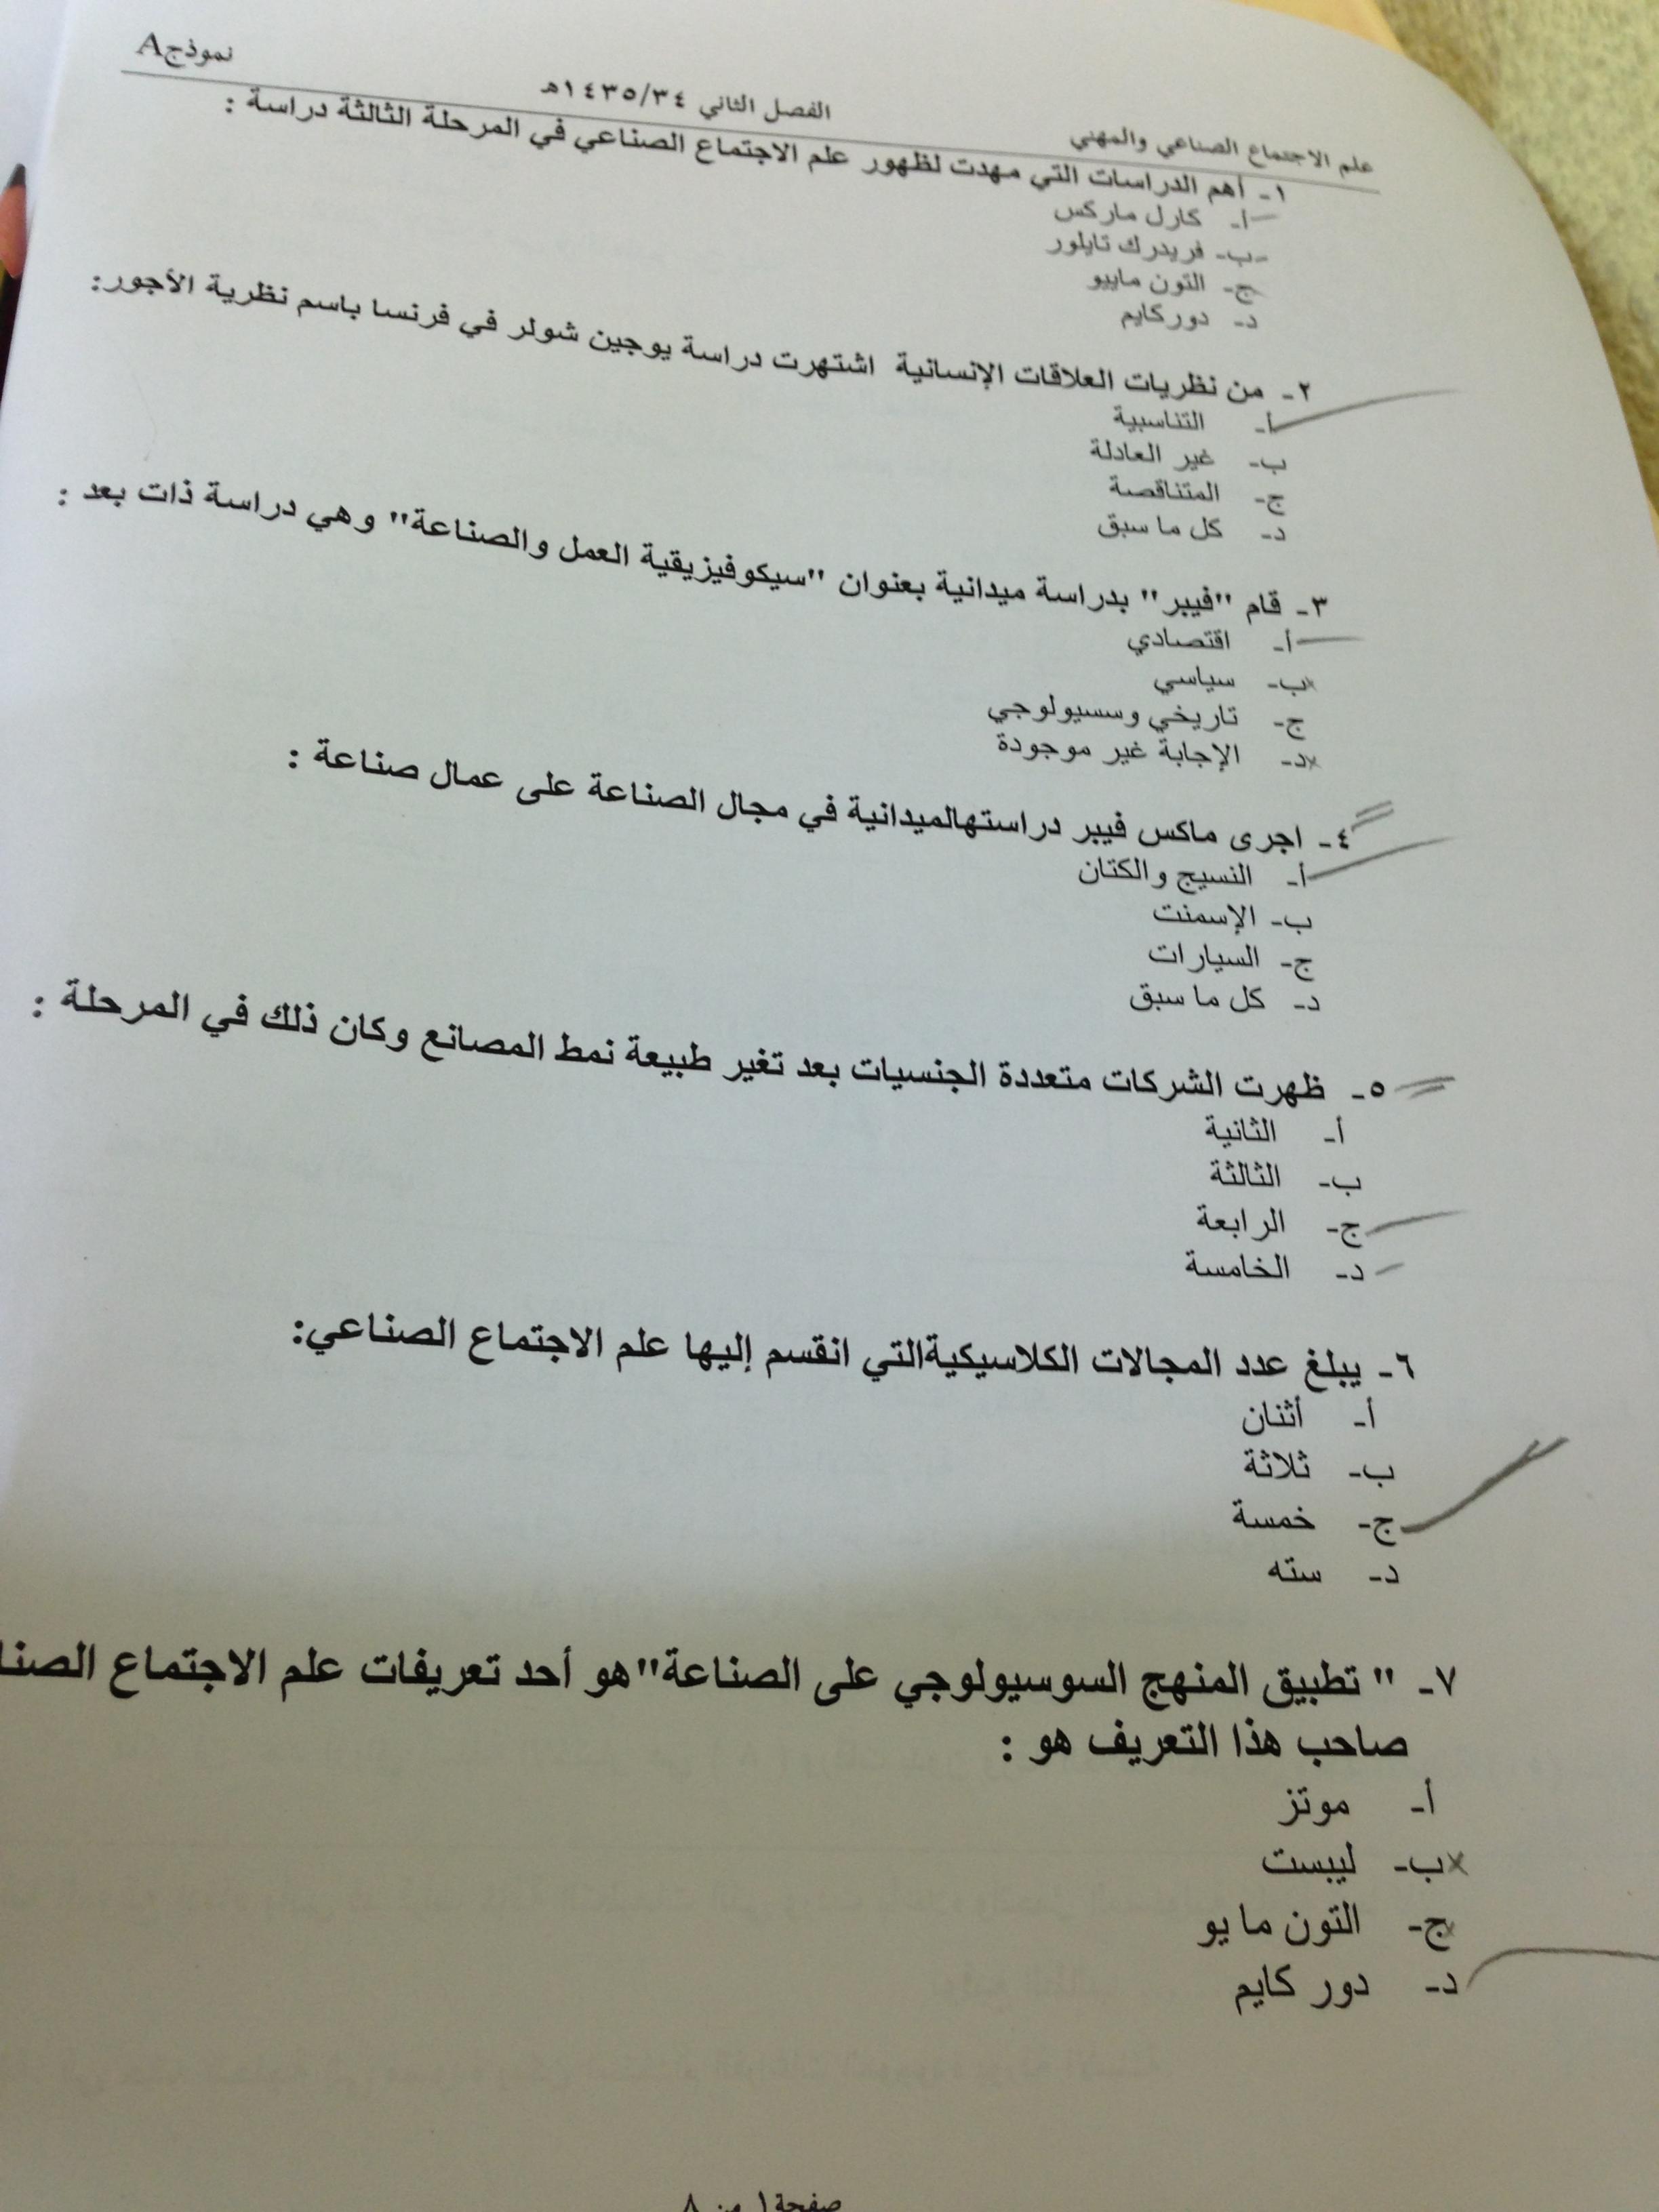 علم الاجتماع الصناعي والمهني الفصل الثاني ١٤٣٥/٣٤هـ نموذجA
١- أهم الدراسات التي مهدت لظهور علم الاجتماع الصناعي في المرحلة الثالثة دراسة :
أ- كارل ماركس
ب- فريدرك تايلور
ج- التون ماييو
د- دوركايم
٢- من نظريات العلاقات الإنسانية اشتهرت دراسة يوجين شولر في فرنسا باسم نظرية الأجور:
أ- التناسبية
ب- غير العادلة
ج- المتناقصة
د- كل ما سبق
٣- قام "فيبر" بدراسة ميدانية بعنوان "سيكوفيزيقية العمل والصناعة" وهي دراسة ذات بعد :
أ- اقتصادي
ب- سياسي
ج- تاريخي وسسيولوجي
د- الإجابة غير موجودة
٤- اجرى ماكس فيبر دراستهالميدانية في مجال الصناعة على عمال صناعة :
أ- النسيج والكتان
ب- الإسمنت
ج- السيارات
د- كل ما سبق
٥- ظهرت الشركات متعددة الجنسيات بعد تغير طبيعة نمط المصانع وكان ذلك في المرحلة :
أ- الثانية
ب- الثالثة
ج- الرابعة
د- الخامسة
٦- يبلغ عدد المجالات الكلاسيكيةالتي انقسم إليها علم الاجتماع الصناعي:
أ- أثنان
ب- ثلاثة
ج- خمسة
د- سته
٧- " تطبيق المنهج السوسيولوجي على الصناعة"هو أحد تعريفات علم الاجتماع الصنا
صاحب هذا التعريف هو :
أ- موتز
ب- ليبست
ج- التون مايو
د- دور كايم
صفحة١ من ٨